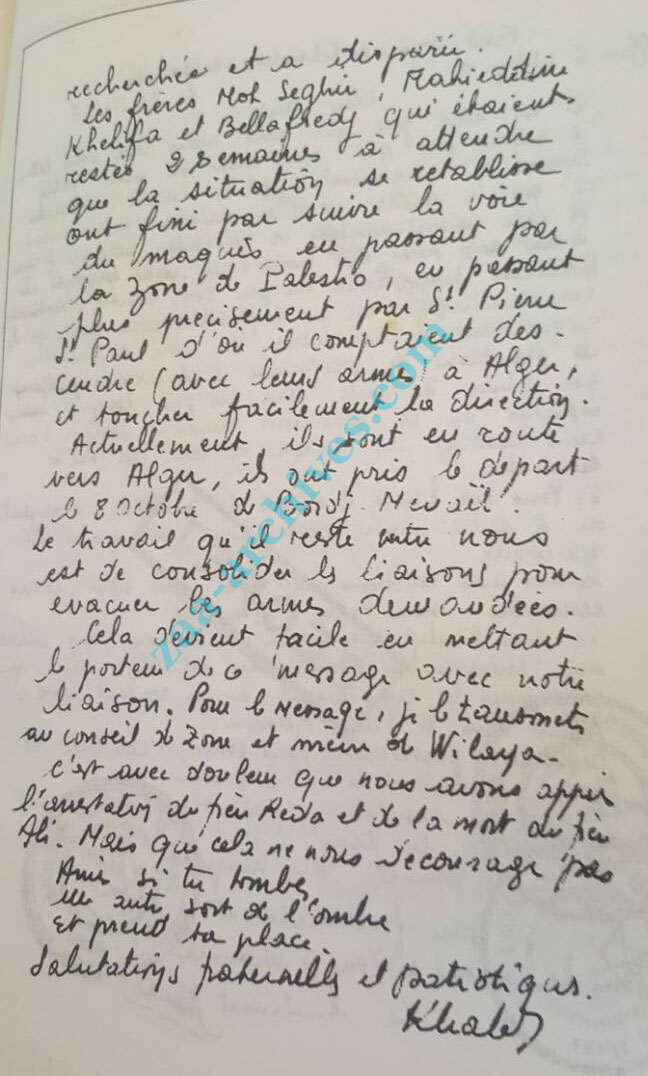 recherchée et a disparue.
Les frères Moh Seghir, Mahieddine
Khelifa et Bellafredj qui étaient
restés 2 semaines à attendre
que la situation se retablisse
ont fini par suivre la voie
du maquis en passant par
la zone de Palestro, en passant
plus precisement par St Pierre
St Paul d'où il comptaient des-
cendre (avec leurs armes) à Alger,
et toucher facilement la direction.
Actuellement, ils sont en route
vers Alger, ils ont pris le depart
le 8 Octobre de Bordj Menaïl.
Le travail qu'il reste entre nous
est de consolider les liaisons pour
evacuer les armes demandées.
Cela devient facile en mettant
le porteur de ce message avec notre
liaison. Pour le Message, je le transmets
au conseil de Zone et même de Wilaya.
C'est avec douleur que nous avons appris
l'arrestation du frère Reda et de la mort du frère
Ali. Mais que cela ne nous décourage pas
Ami si tu tombes
un autre sort de l'ombre
et prend ta place.
Salutations fraternelles et patriotiques.
Khaled
zaa-archives.com